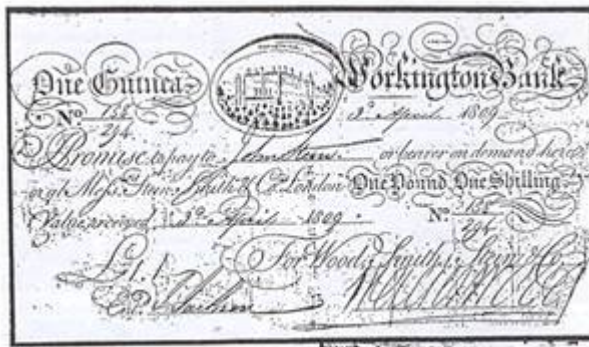 One Guinea Workington Bank
No. 155/294 3d. April 1809
I Promise to pay to John Stein or bearer on demand here
or at Messrs. Stein Smith & Co. London One Pound One Shilling
Value received 3d. April 1809 No. 155/294
For Wood, Smith, Stein & Co.
£1.1